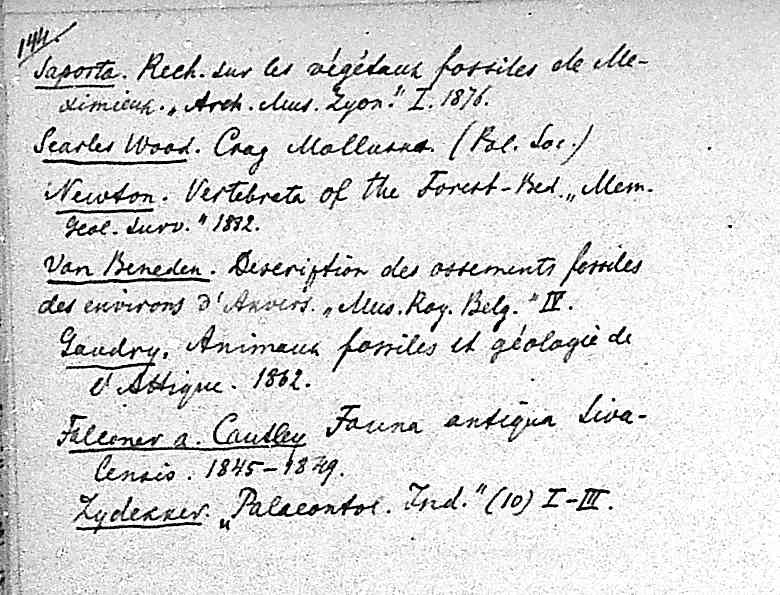 144.
Saporta. Rech. sur les végétaux fossiles de Me-
ximieux. „Arch. Mus. Lyon." I. 1876.
Searles Wood. Crag Mollusca. (Pal. Soc.)
Newton. Vertebrata of the Forest-Bed. „Mem.
Geol. Surv." 1882.
Van Beneden. Description des ossements fossiles
des environs d'Anvers. „Mus. Roy. Belg." IV.
Gaudry. Animaux fossiles et géologie de
l'Attique. 1862.
Falconer a. Cautley Fauna antiqua Siva-
lensis. 1845-1849.
Lydekker. „Palaeontol. Ind." (10) I-III.